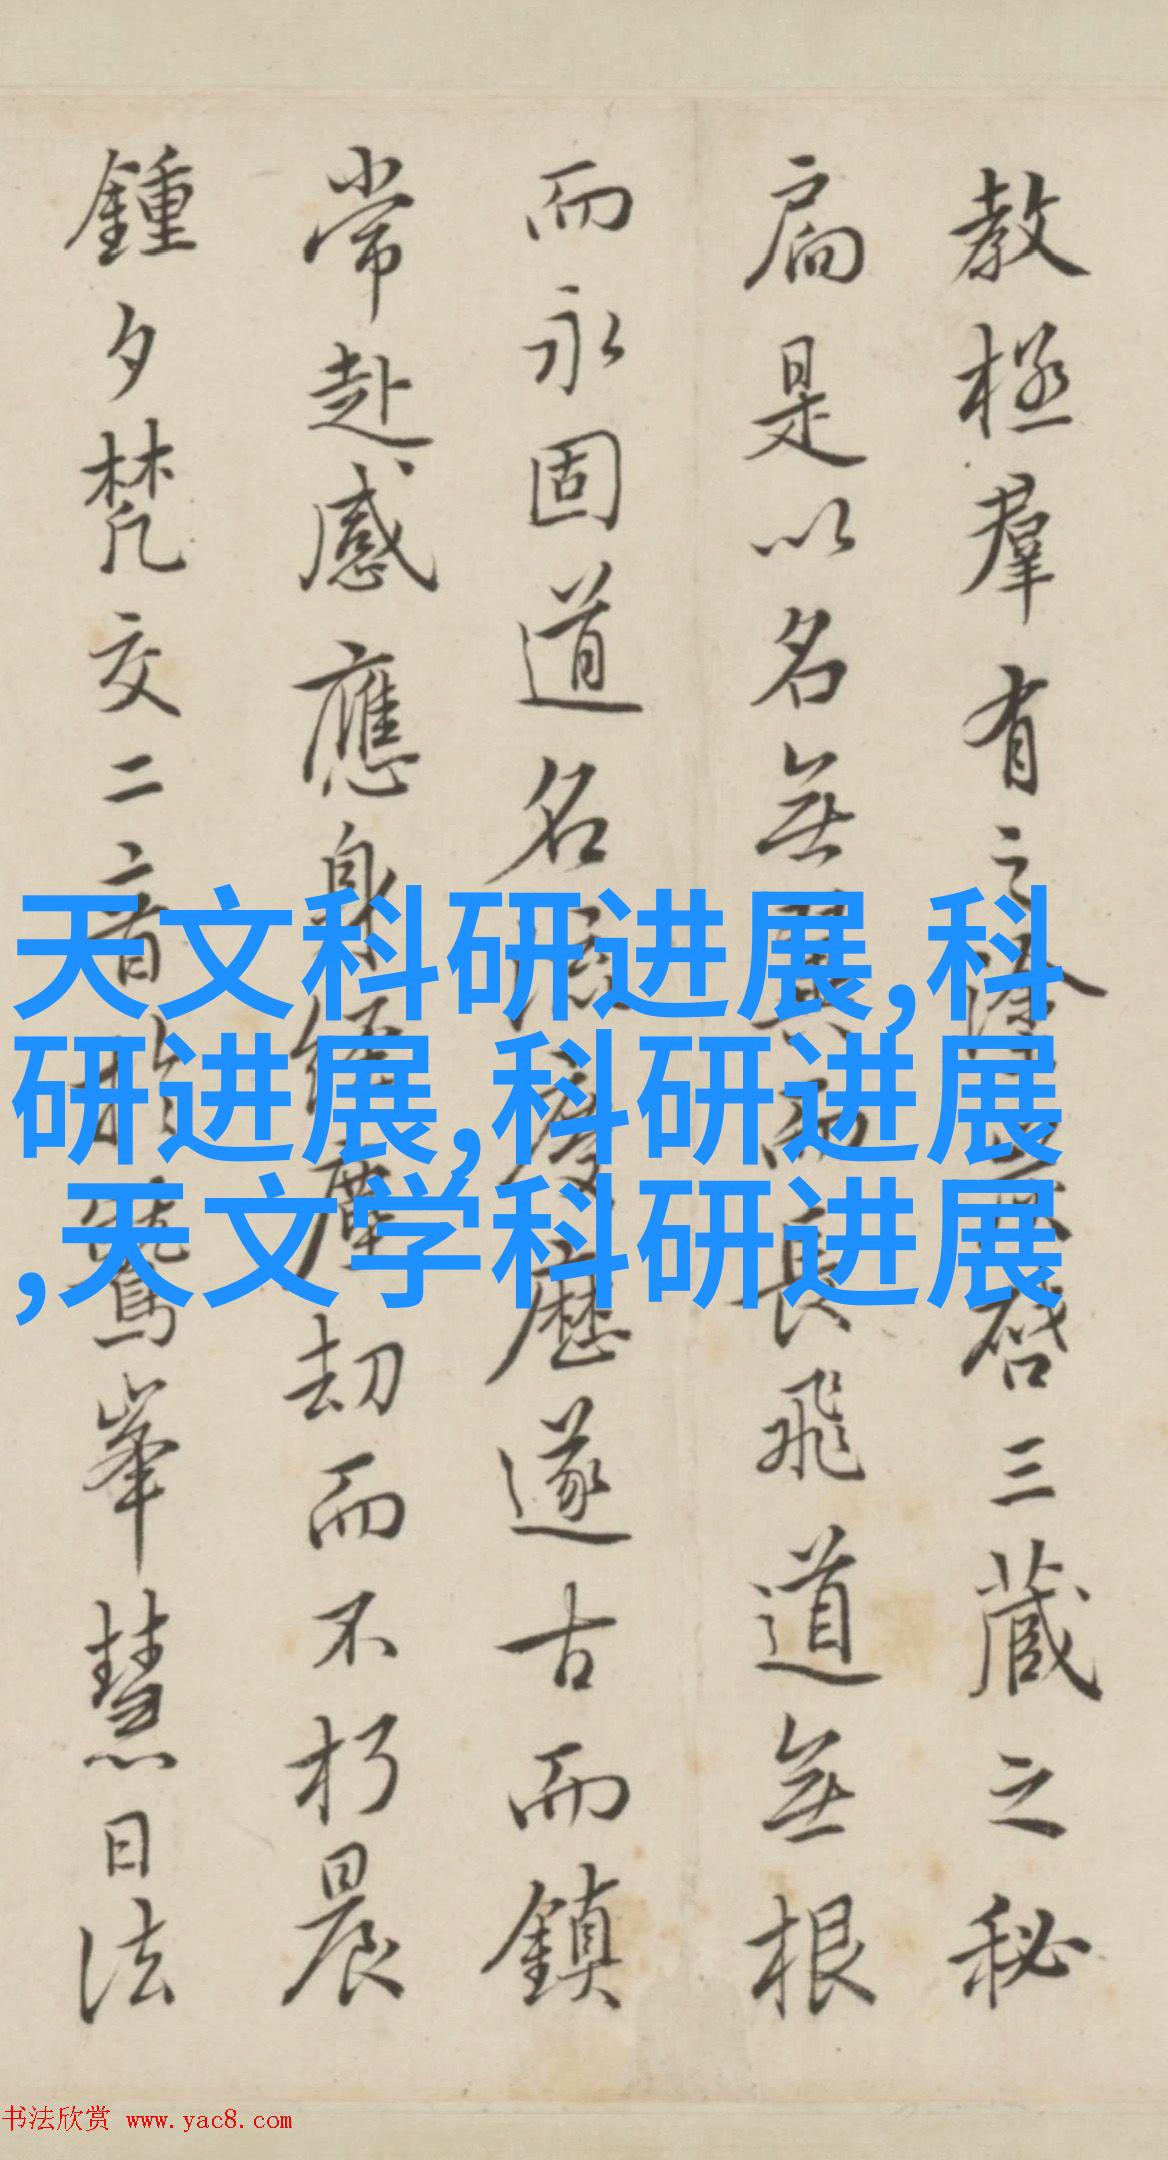 教拯羣有之塗炭啓三藏之秘
扃是以名無翼而長飛道無根
而永固道名流慶歷遂古而鎮
常赴感應身經塵劫而不朽晨
鍾夕梵交二音於鷲峯慧日法
天文科研进展,科
研进展,科研进展
,天文学科研进展
书法欣赏 www.yac8.com